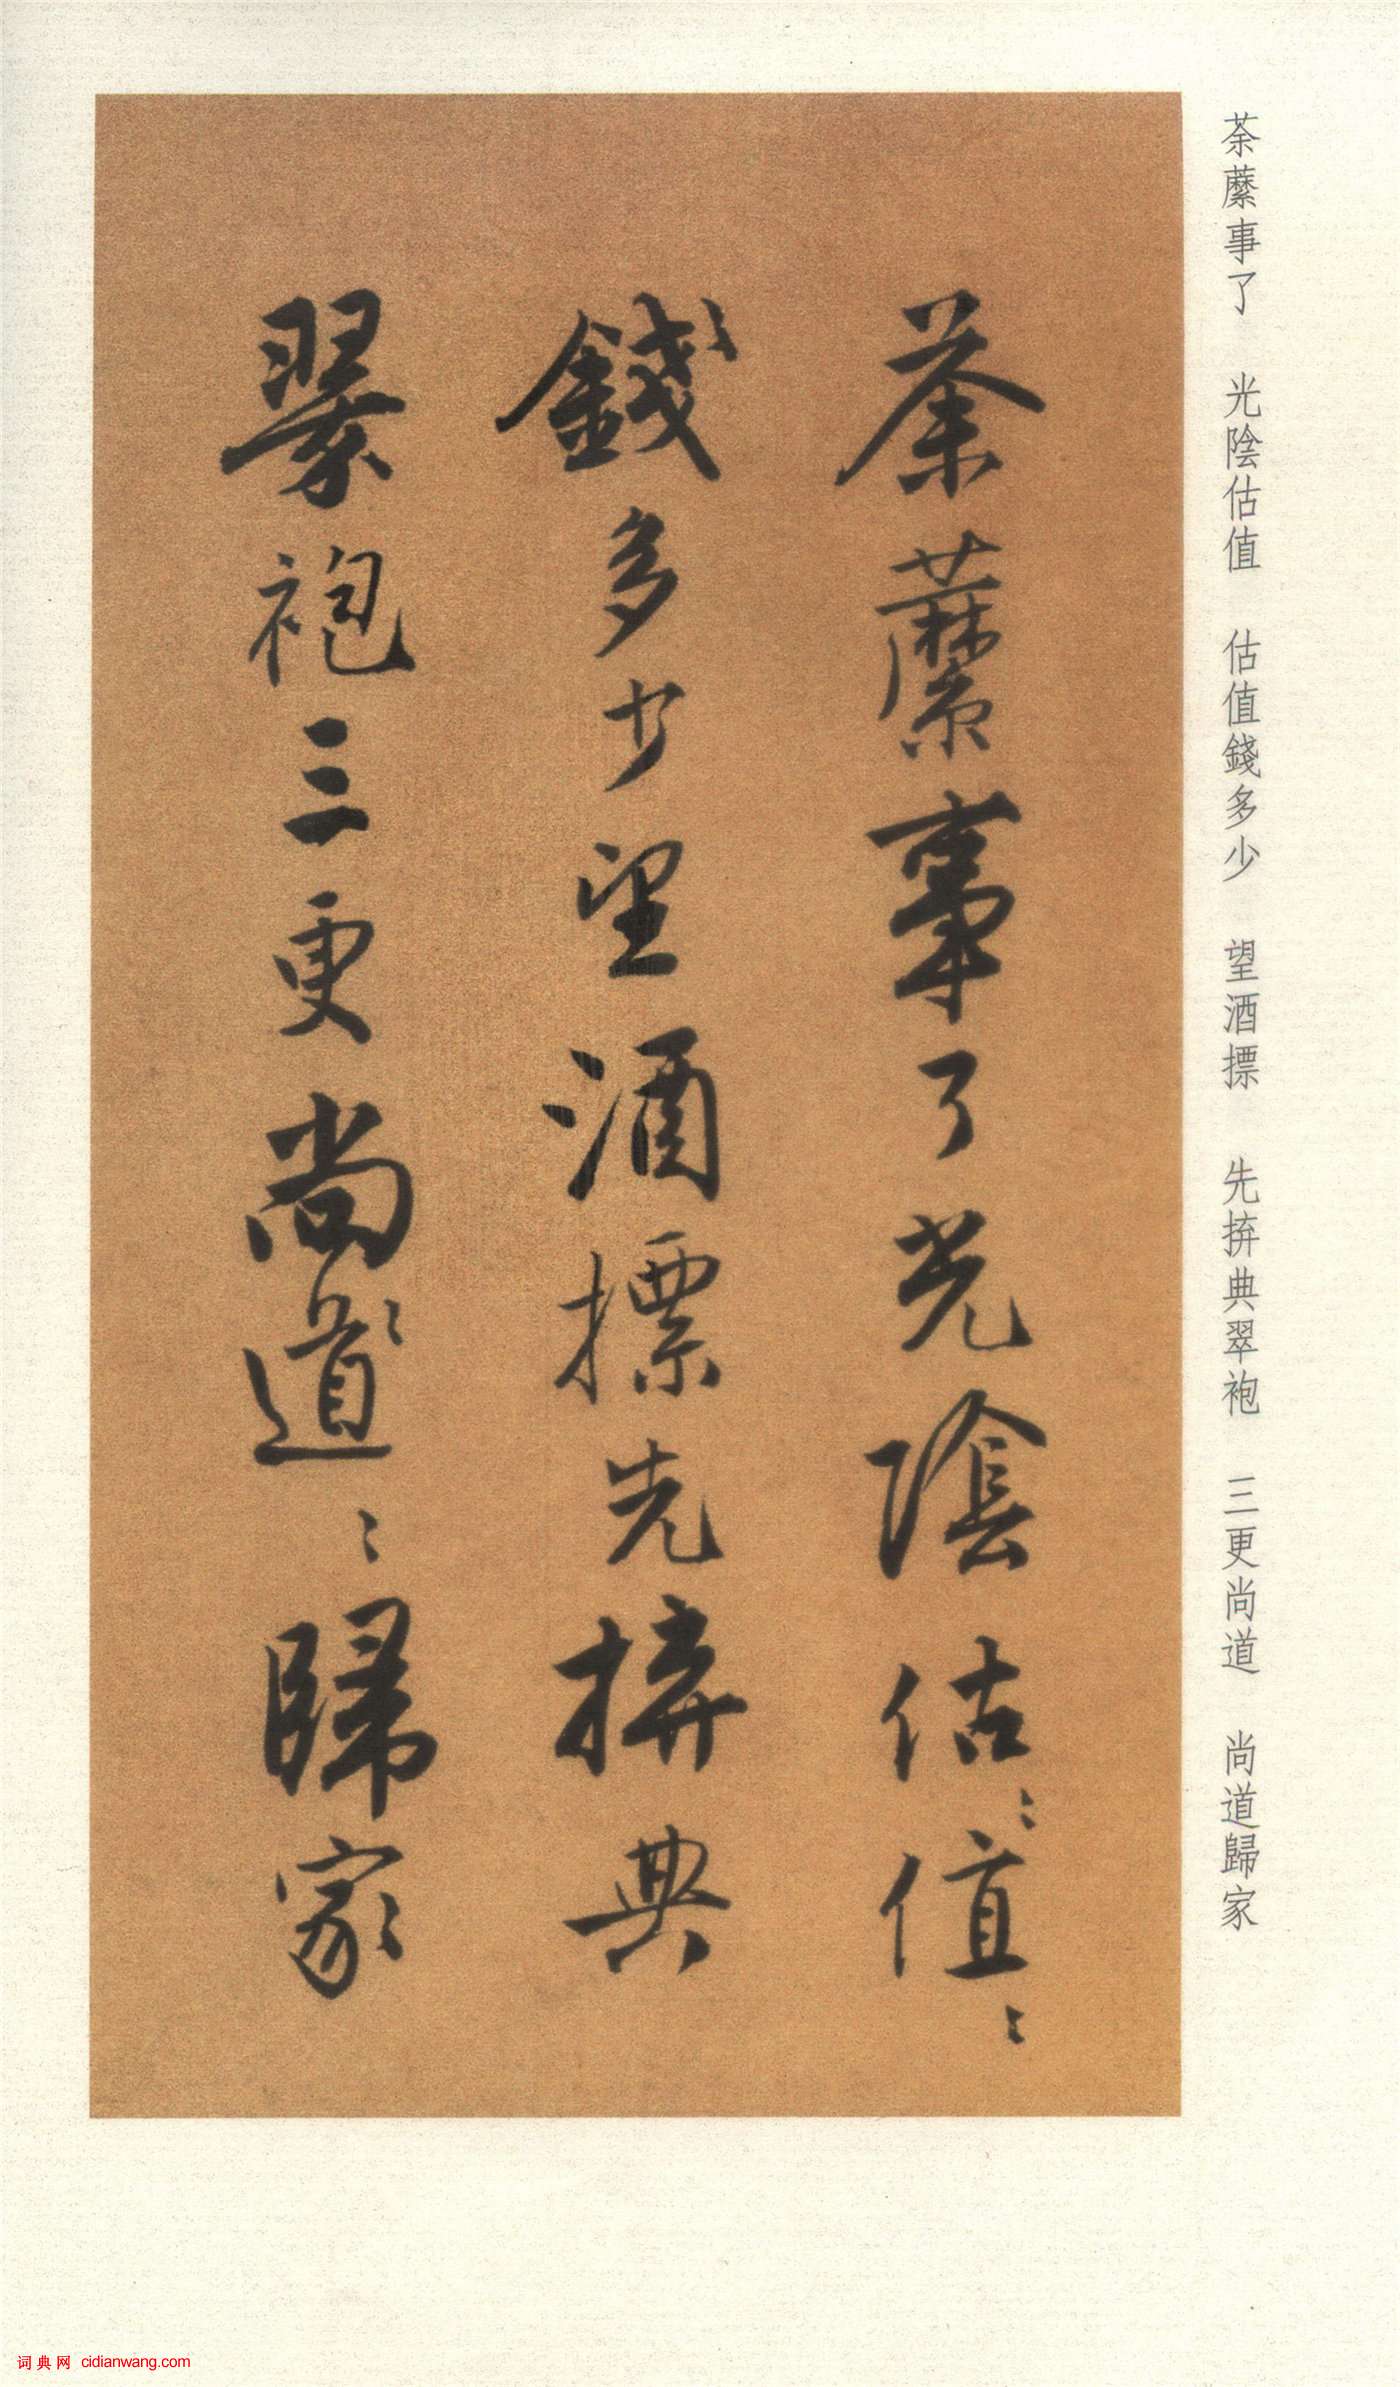 荼蘼事了 光陰估值 估值錢多少 望酒摽 先拚典翠袍 三更尚道 尚道歸家
荼蘼事了光陰估〻值〻
錢〻多少望酒摽先拚典
翠袍三更尚〻道〻歸家
词典网 cidianwang.com